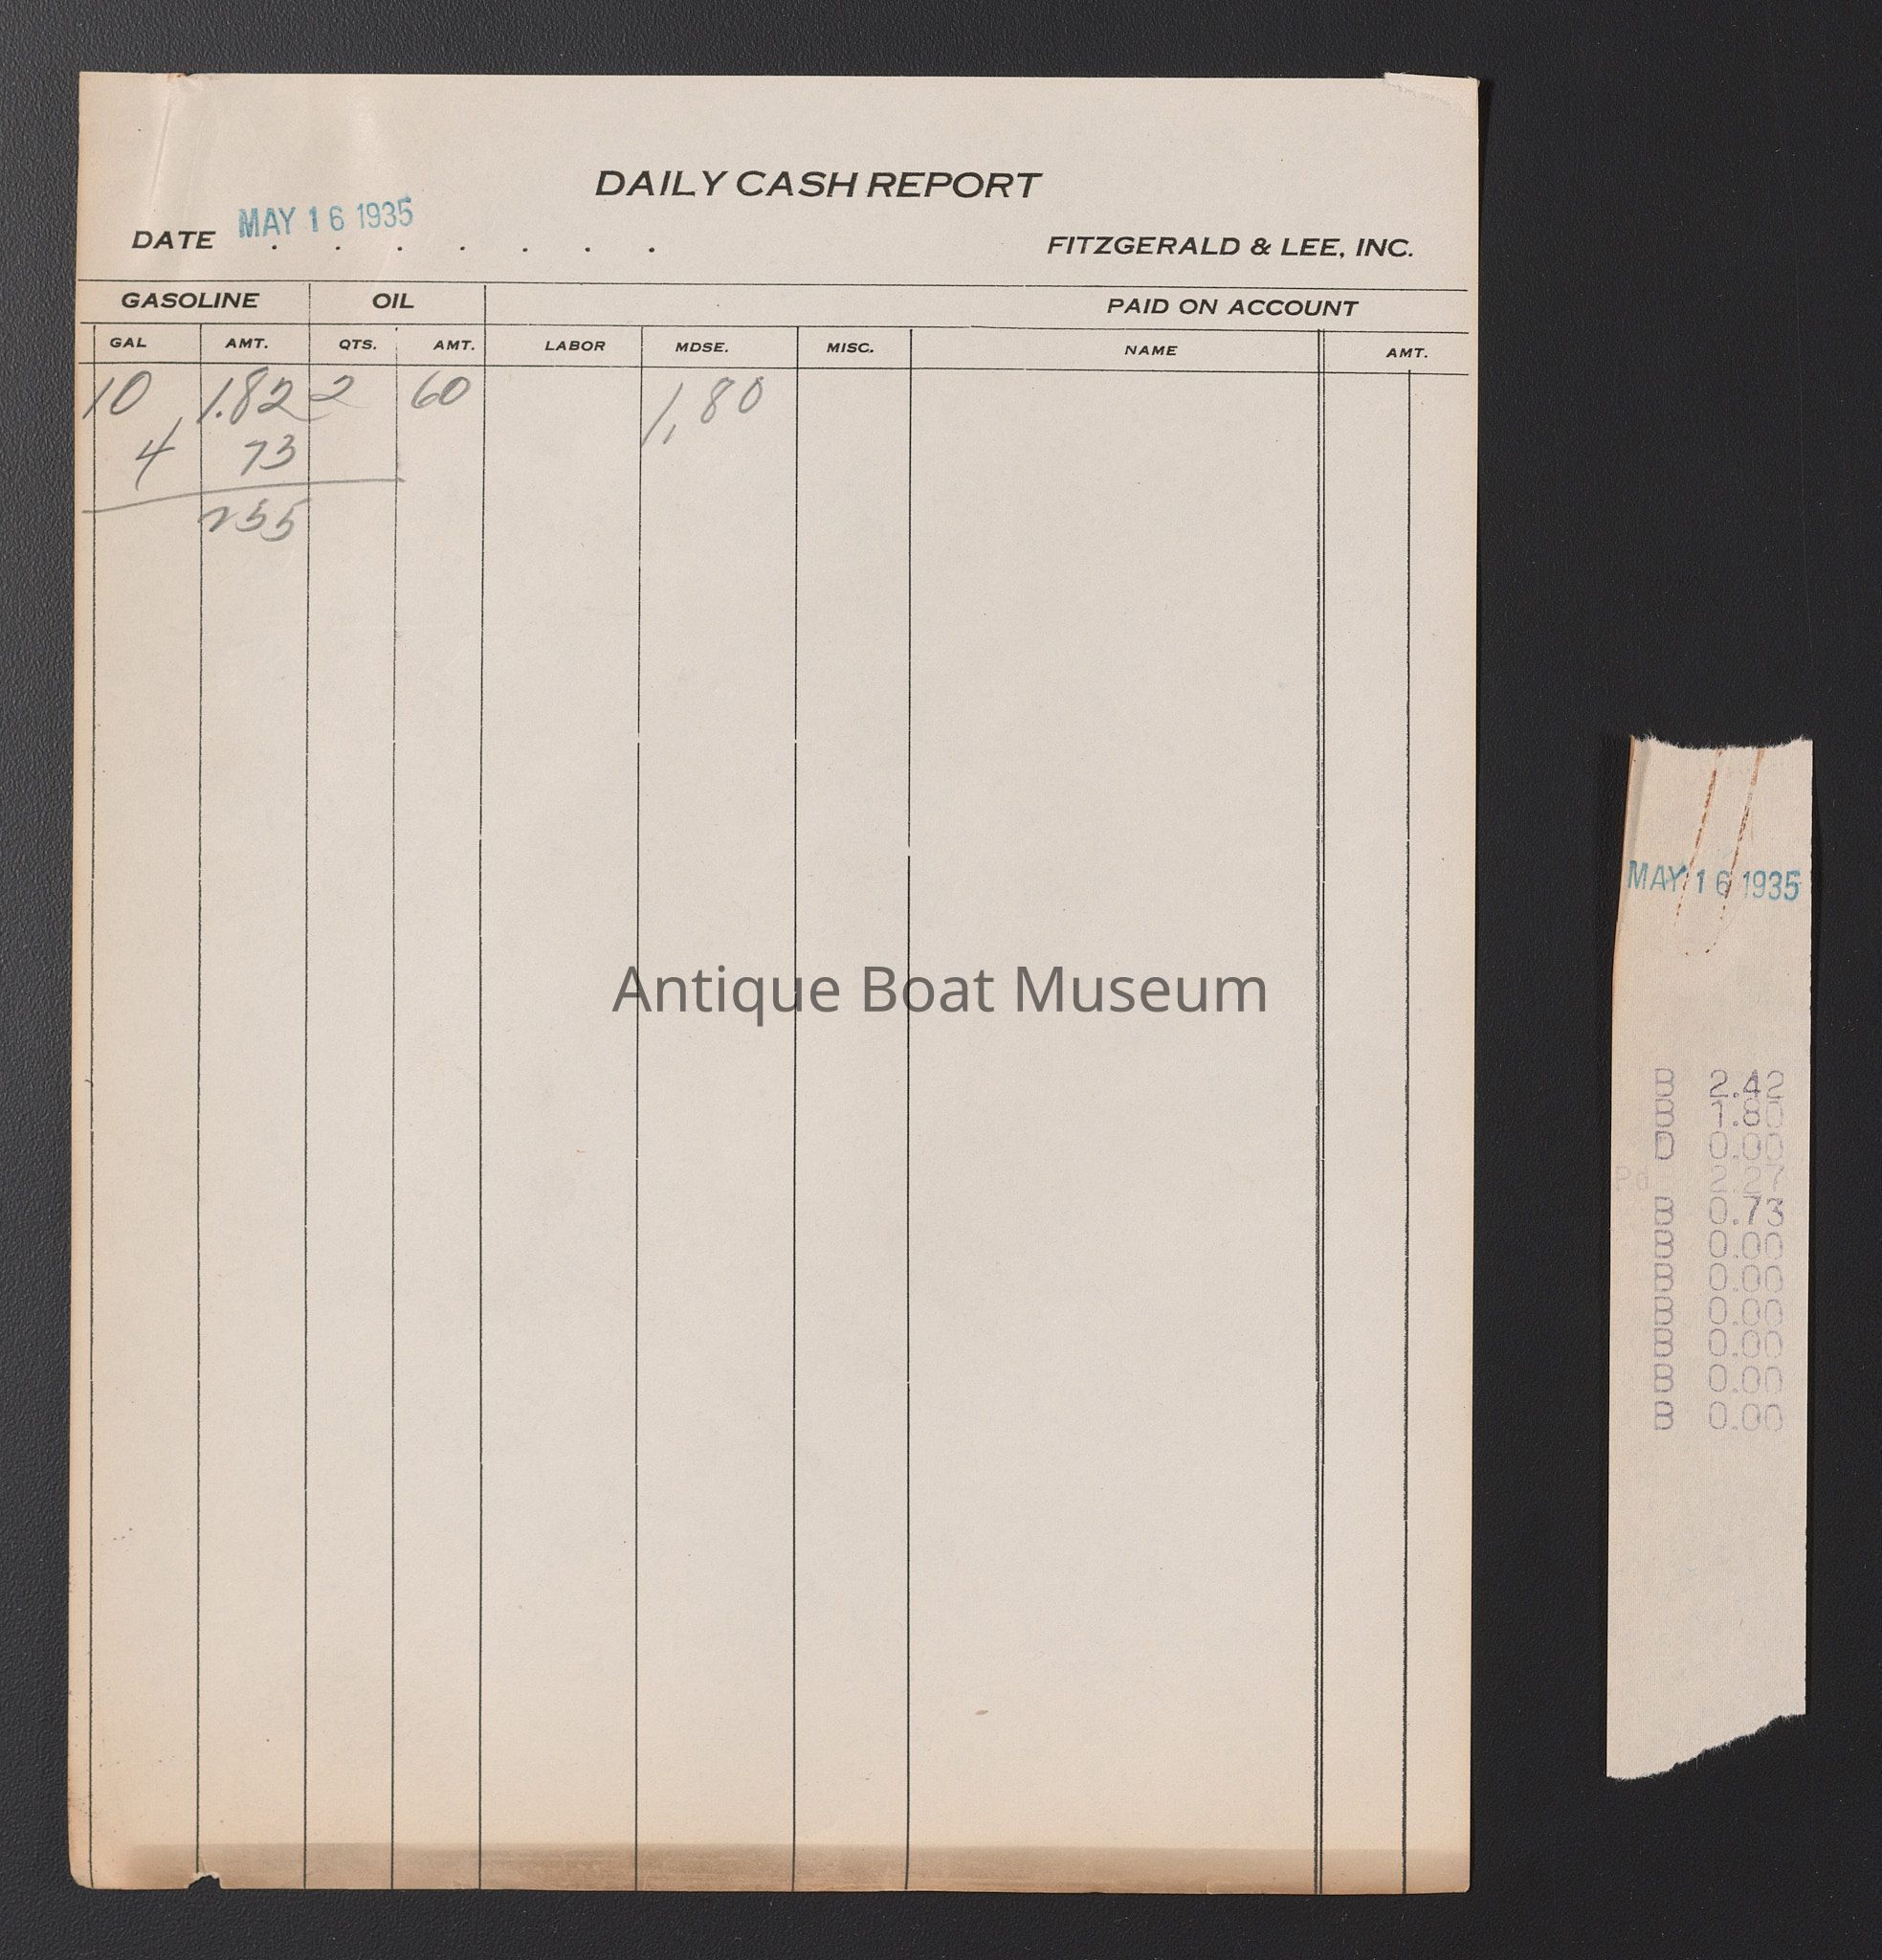 DAILY CASH REPORT
DATE MAY 16 1935 . . . . . . .
FITZGERALD & LEE, INC.
GASOLINE OIL PAID ON ACCOUNT
GAL AMT. QTS. AMT. LABOR MDSE. MISC. NAME AMT.
10 1.82 2 60 1,80
4 73
255
Antique Boat Museum
MAY 16 1935
B 2.42
B 1.80
D 0.00
Pd 2.27
B 0.73
B 0.00
B 0.00
B 0.00
B 0.00
B 0.00
B 0.00